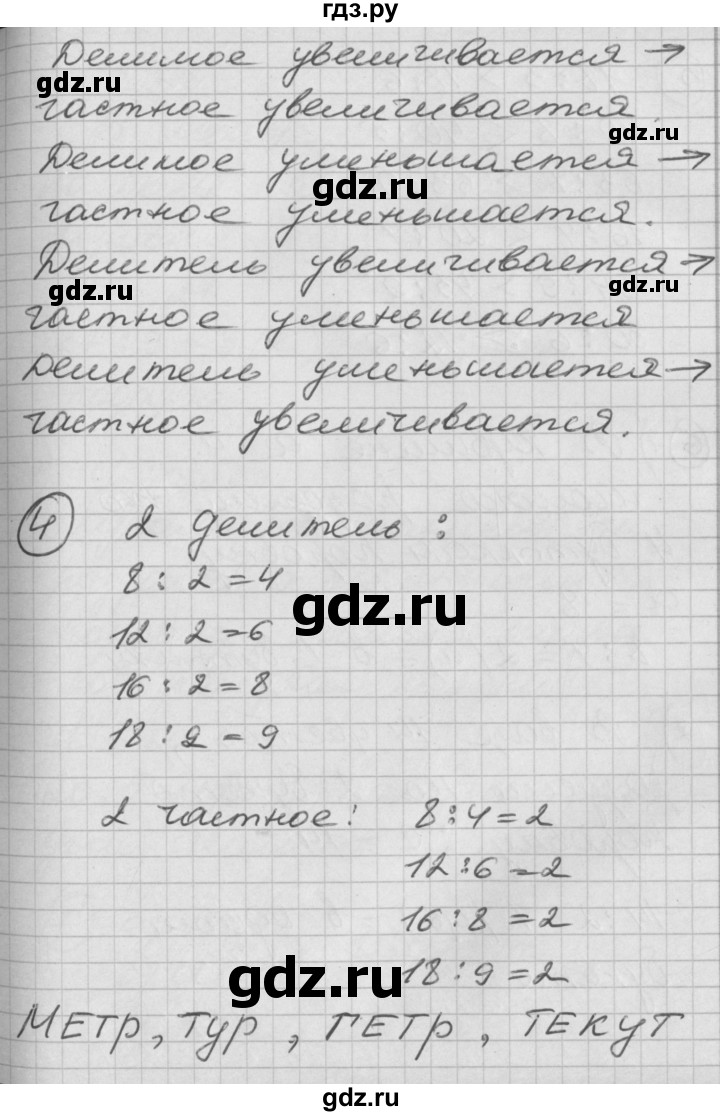 гдз.ру
Делимое увеличивается →
gdz.ru
частное увеличивается.
gdz.ru
Делимое уменьшается →
gdz.ru
частное уменьшается.
Делитель увеличивается →
gdz.ru
gdz.ru
частное уменьшается
Делитель уменьшается →
частное увеличивается.
4 2 делитель :
8 : 2 = 4
gdz.ru
12 : 2 = 6
16 : 2 = 8
18 : 2 = 9
2 частное: 8 : 4 = 2
12 : 6 = 2
16 : 8 = 2
18 : 9 = 2
gdz.ru
МЕТР, ТУР, ПЕТР, ТЕКУТ
gdz.ru